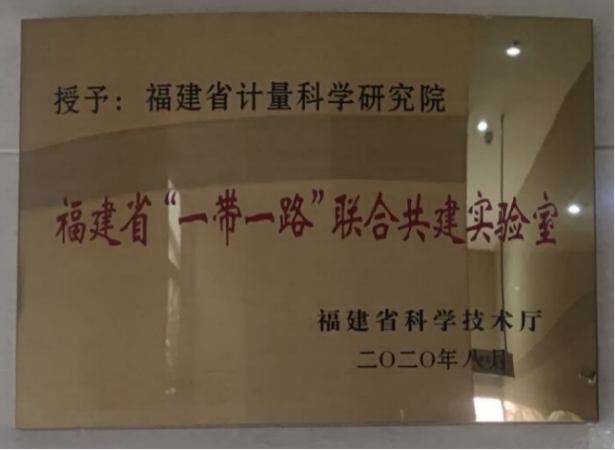 授予：福建省计量科学研究院
福建省“一带一路”联合共建实验室
福建省科学技术厅
二〇二〇年八月